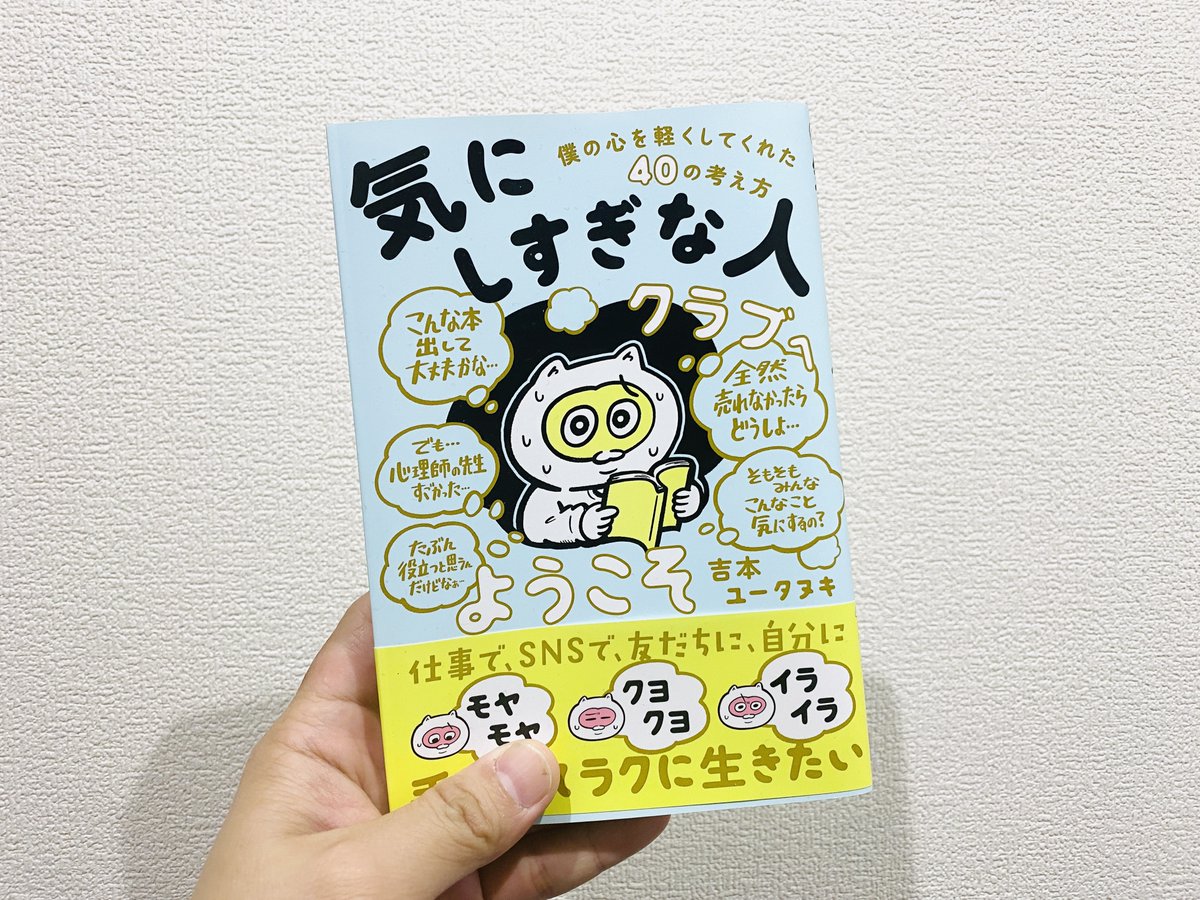 僕の心を軽くしてくれた
40の考え方
気に
しすぎな人
クラブへ
ようこそ
こんな本
出して
大丈夫かな…
でも…
心理師の先生
すごかった…
たぶん
役立つと思うん
だけどなぁ…
全然
売れなかったら
どうしよ…
そもそも
みんな
こんなこと
気にするの?
吉本
ユータヌキ
仕事で、SNSで、友だちに、自分に
モヤ
モヤ
クヨ
クヨ
イラ
イラ
ラクに生きたい